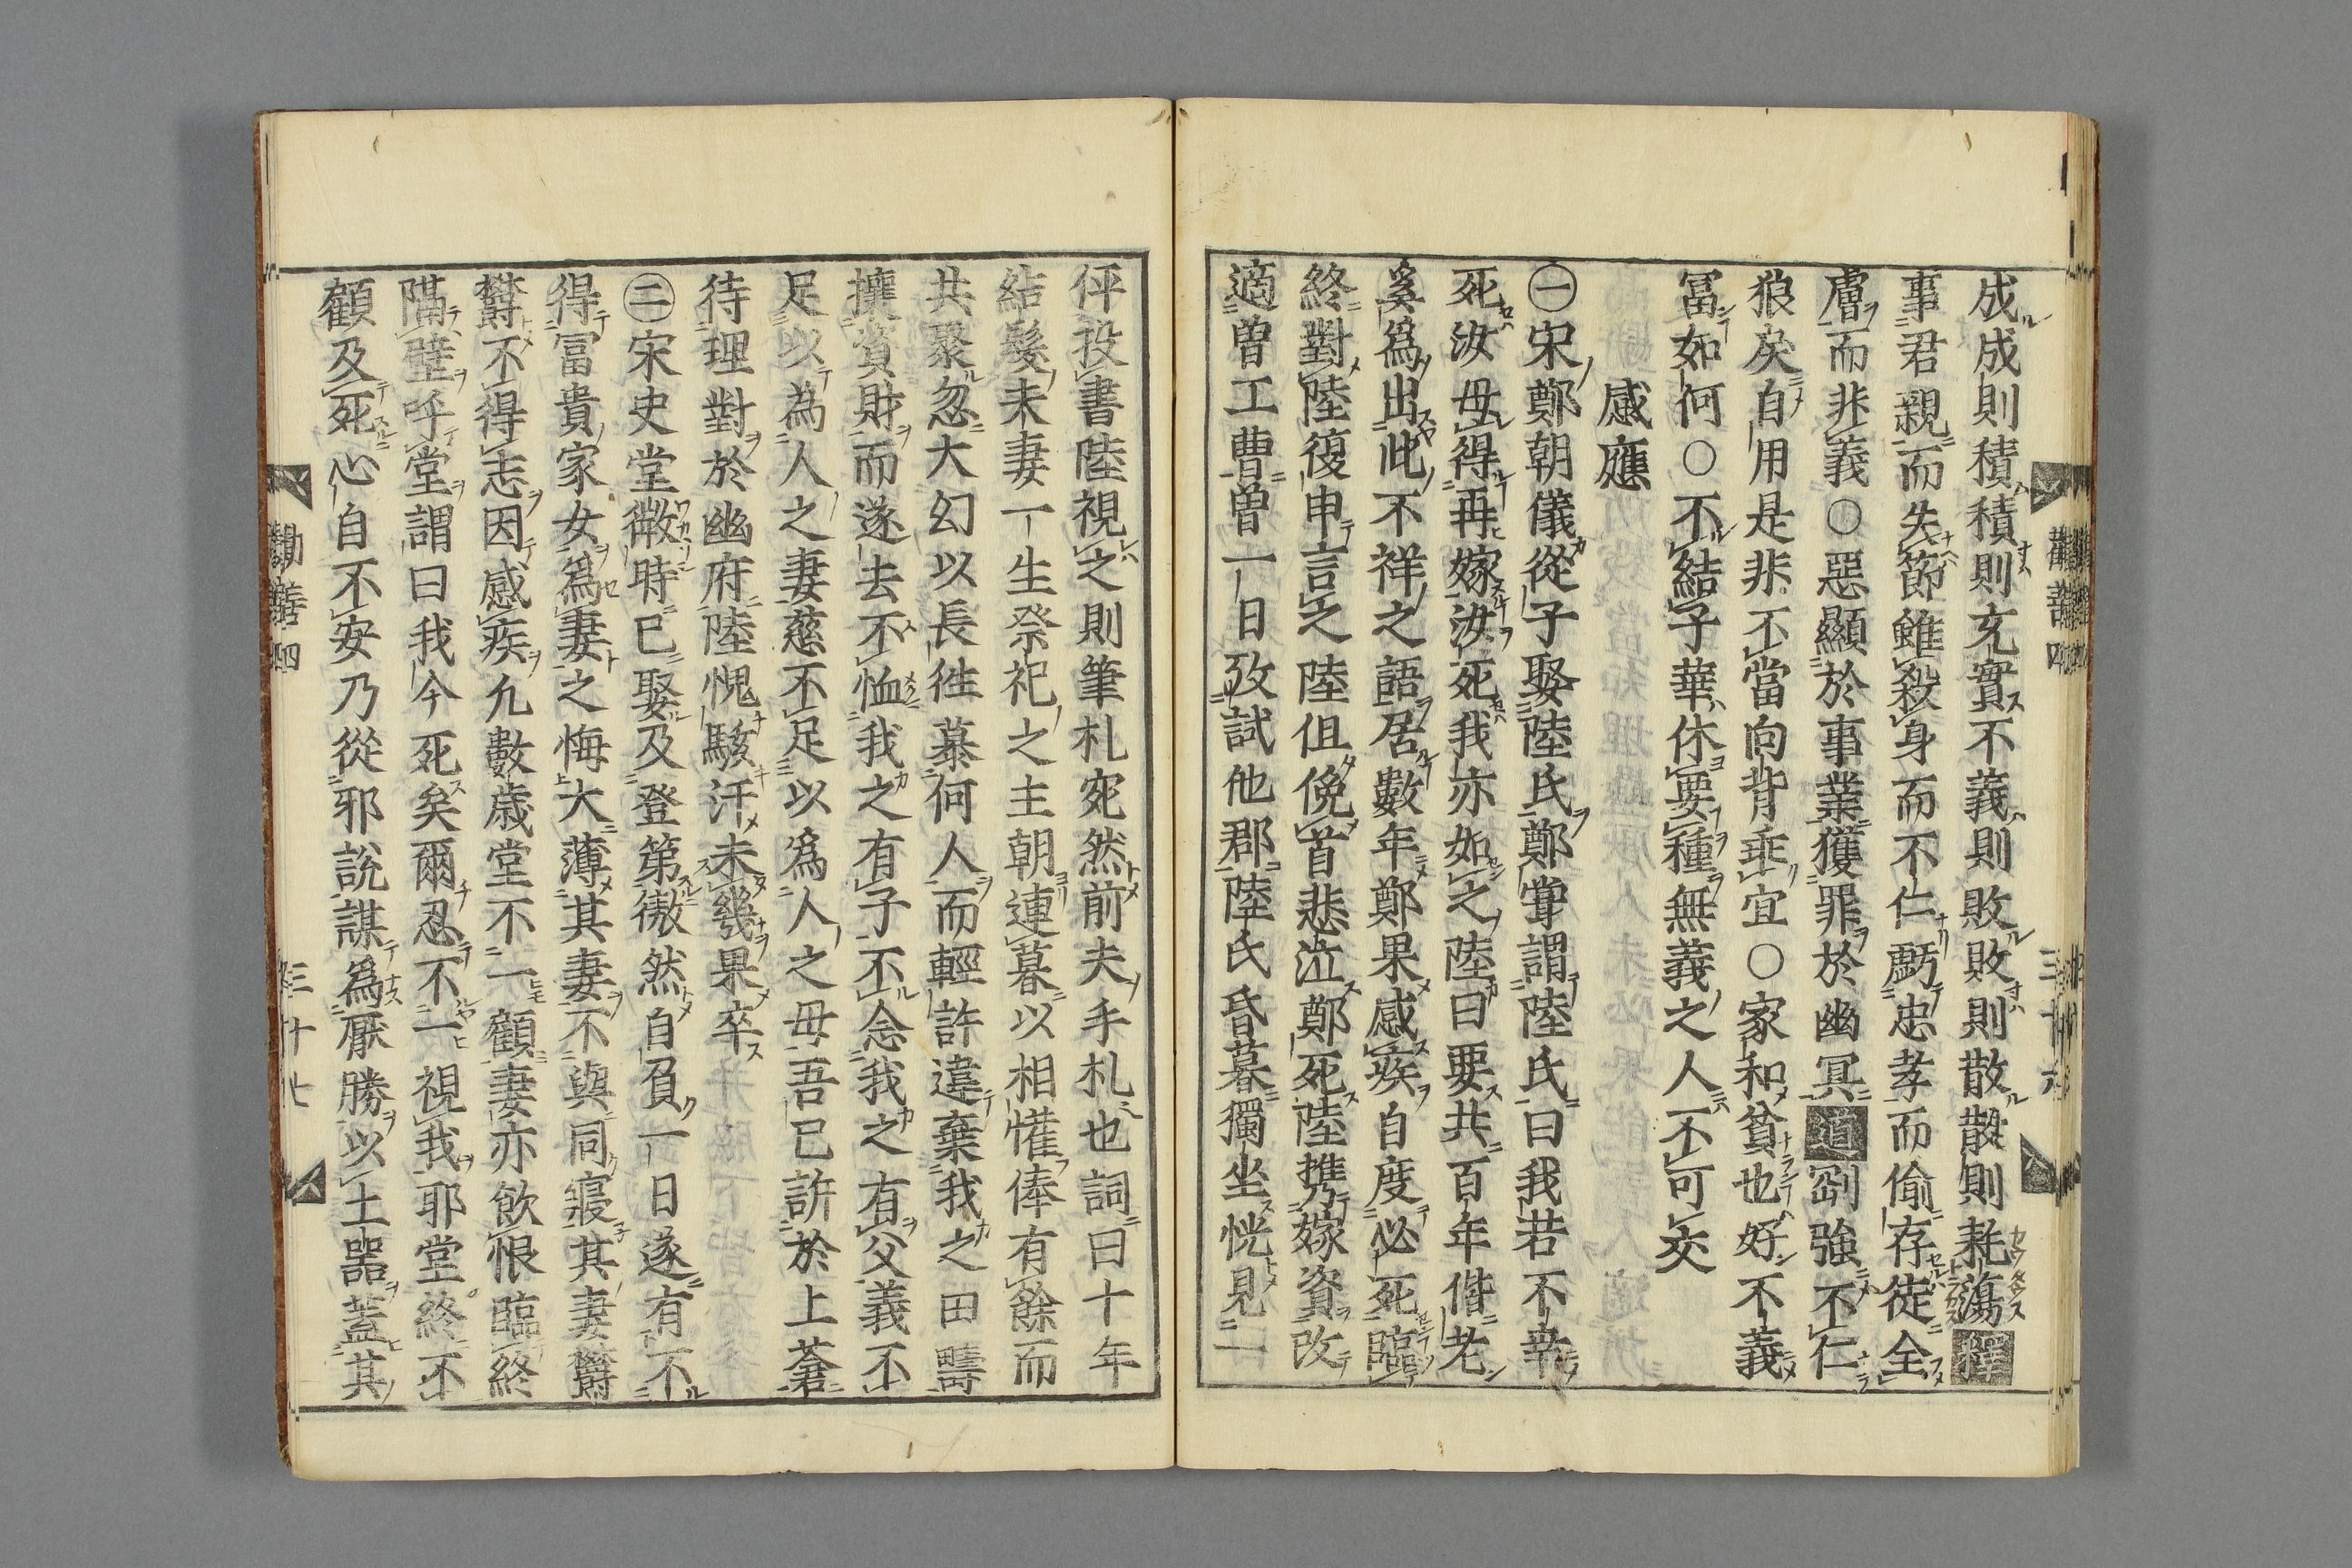 成成則積積則充實不義則敗敗則散散則耗蕩釋
事君親而失節雖殺身而不仁虧忠孝而偷存徒全
膚而非義○惡顯於事業獲罪於幽冥道剛強不仁
狼戾自用是非不當向背乖宜○家和貧也好不義
冨如何○不結子華休要種無義之人不可交
感應
㊀宋鄭朝儀從子娶陸氏鄭甞謂陸氏曰我若不幸
死汝毋得再嫁汝死我亦如之陸曰要共百年偕老
奚爲出此不祥之語居數年鄭果感疾自度必死臨
終對陸復申言之陸伹俛首悲泣鄭死陸携嫁資改
適曽工曹曽一日攷試他郡陸氏昏暮獨坐恍見一
伻投書陸視之則筆札宛然前夫手札也詞曰十年
結髮末妻一生祭祀之主朝連暮以相懽俸有餘而
共聚忽大幻以長徃慕何人而輕許違棄我之田疇
攘資財而遂去不恤我之有子不念我之有父義不
足以為人之妻慈不足以爲人之毋吾已許於上蒼
待理對於幽府陸愧駭汗未幾果卒
㊁宋史堂微時已娶及登第傲然自負一日遂有不
得冨貴家女爲妻之悔大薄其妻不與同寢其妻欝
欝不得志因感疾允數歳堂不一顧妻亦飲恨臨終
隔壁呼堂謂曰我今死矣爾忍不一視我耶堂終不
顧及死心自不安乃從邪説謀爲厭勝以土器蓋其
勸善四
三十七
勸善四